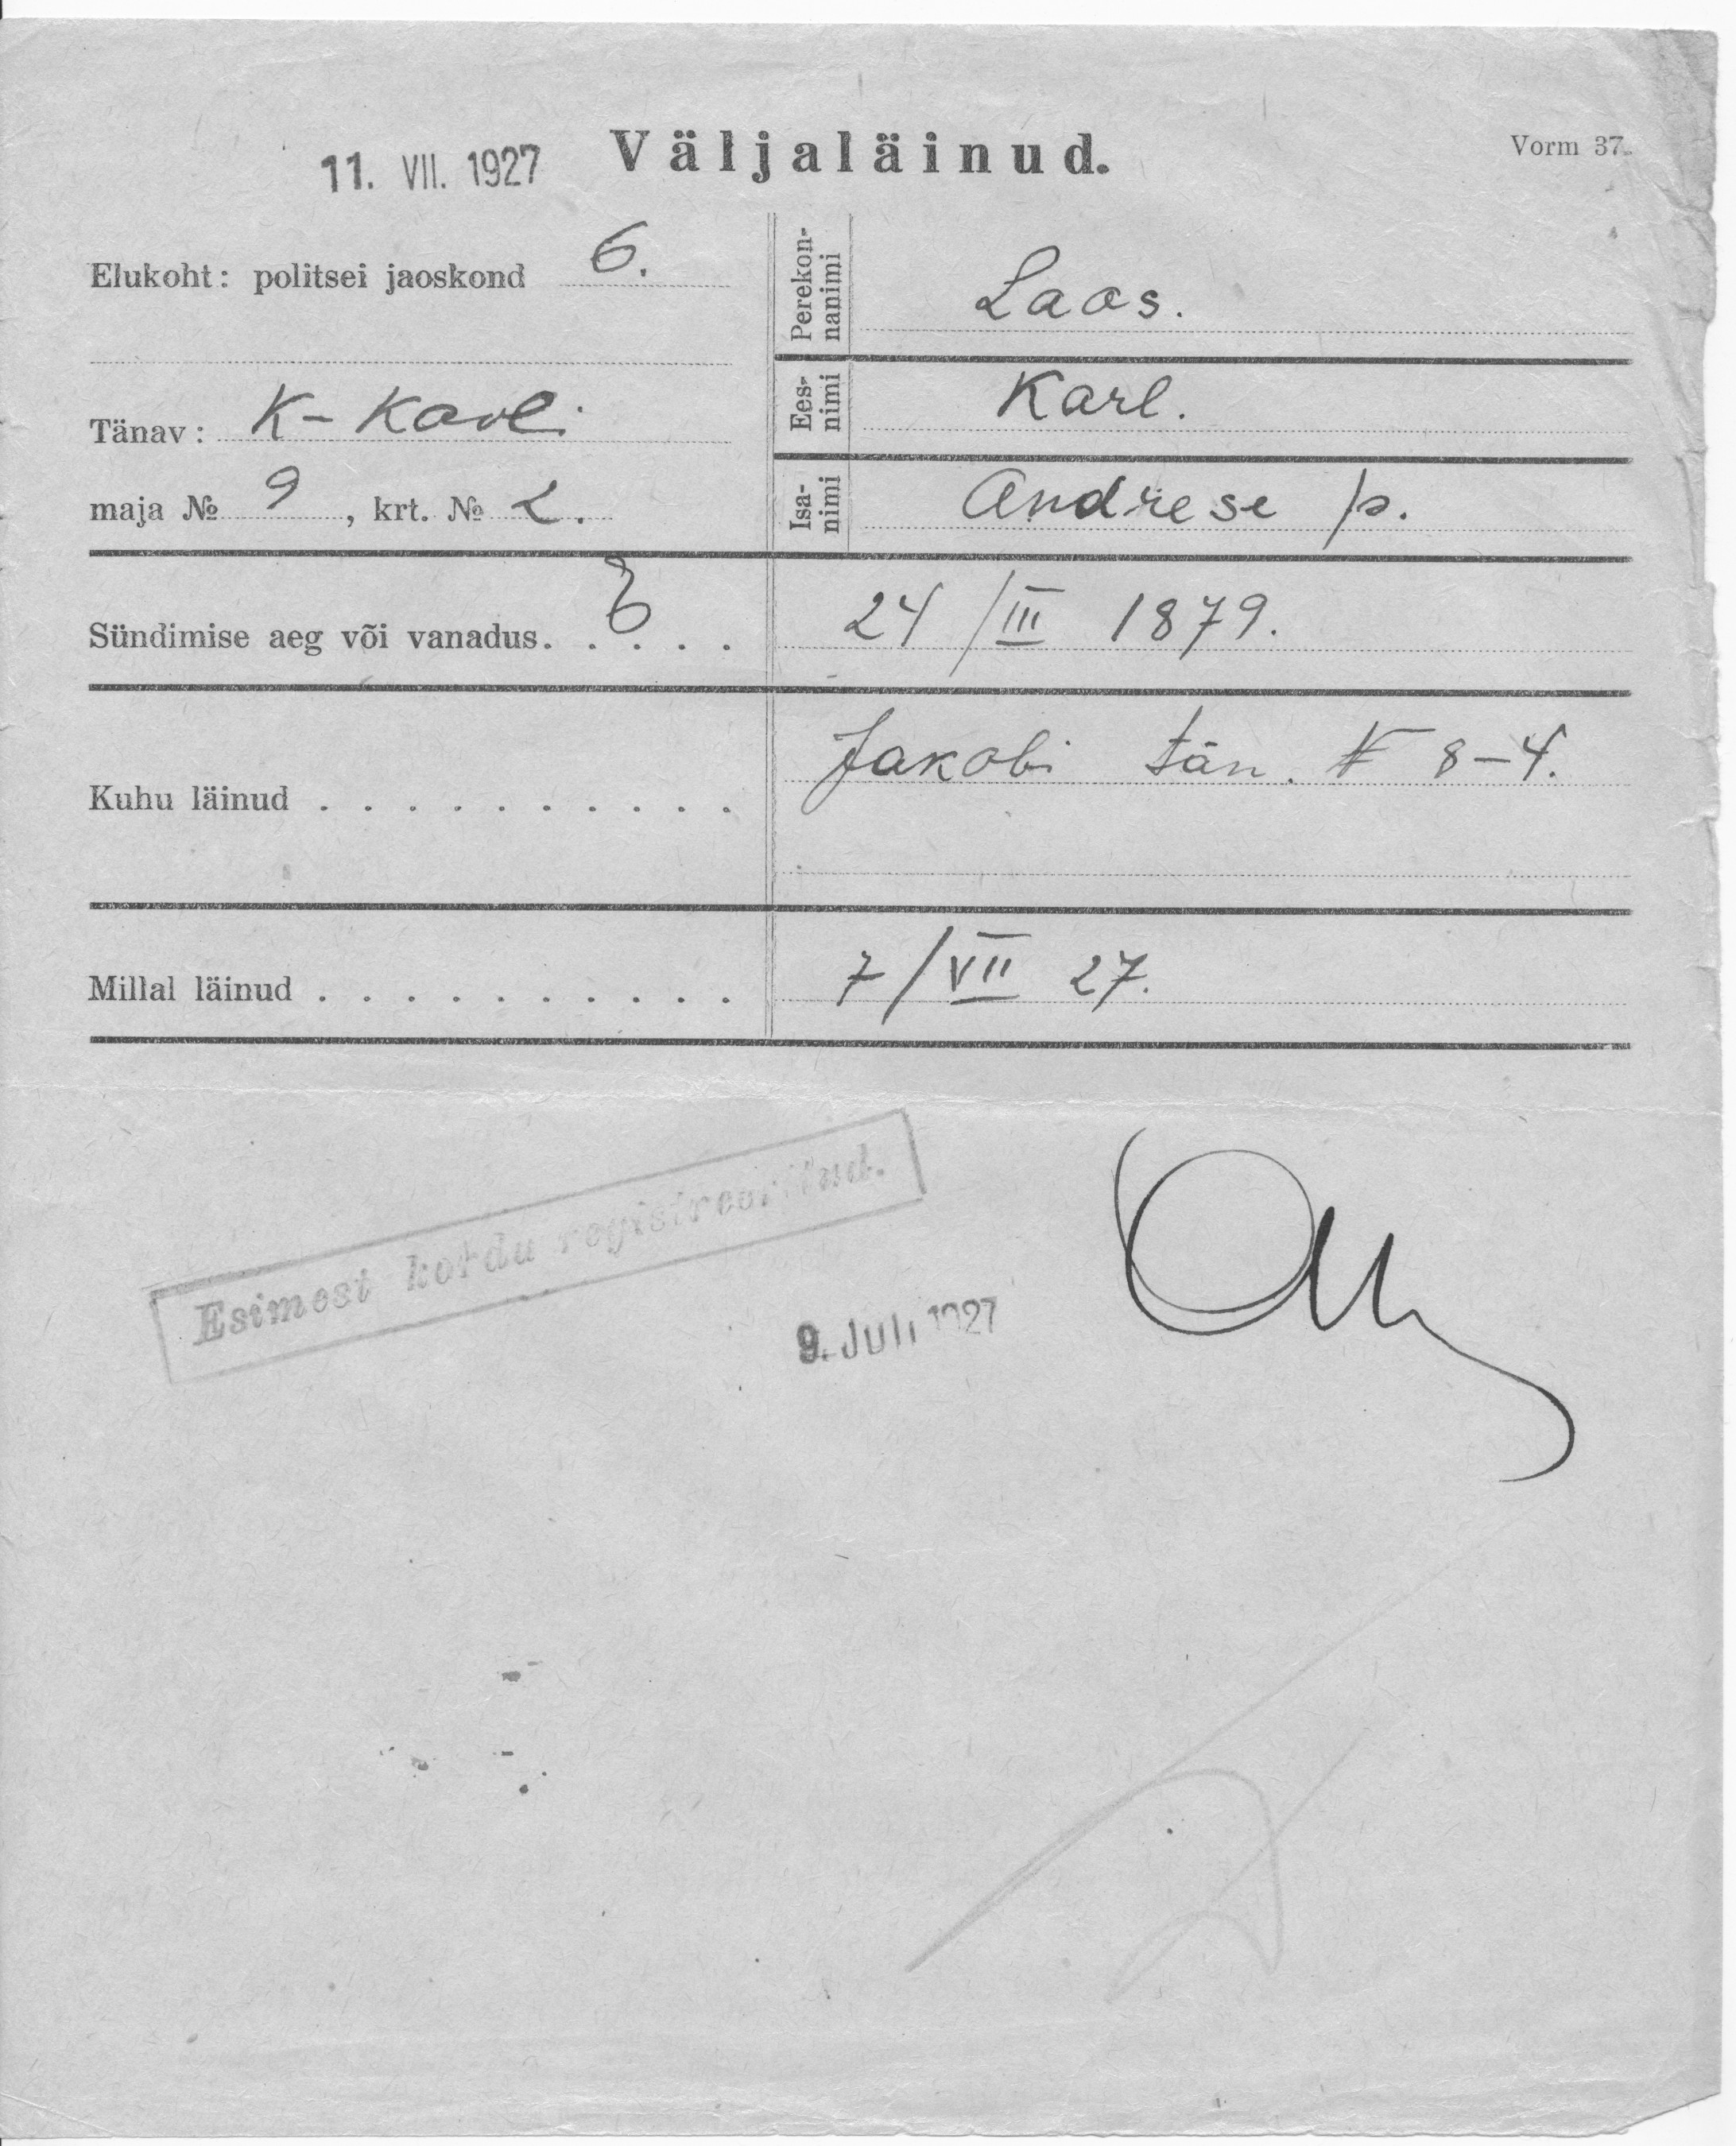 11. VII. 1927 Väljaläinud. Vorm 37.
Elukoht: politsei jaoskond 6.
Tänav: K-Karli
maja № 9, krt. № 2.
Perekon-
nanimi
Laas.
Ees-
nimi
Karl.
Isa-
nimi
Andrese p.
Sündimise aeg või vanadus. . . . . 24/III 1879.
Kuhu läinud . . . . . . . . . . Jakobi tän. № 8-4.
Millal läinud . . . . . . . . . . 7/VII 27.
Esimest kordu registreeritud.
9. Juli 1927